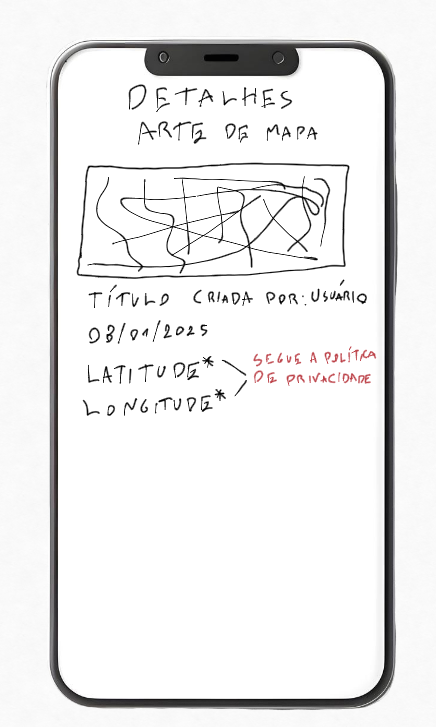 DETALHES
ARTE DE MAPA
TÍTULO CRIADA POR: USUÁRIO
03/01/2025
LATITUDE*
LONGITUDE*
SEGUE A POLÍTICA
DE PRIVACIDADE